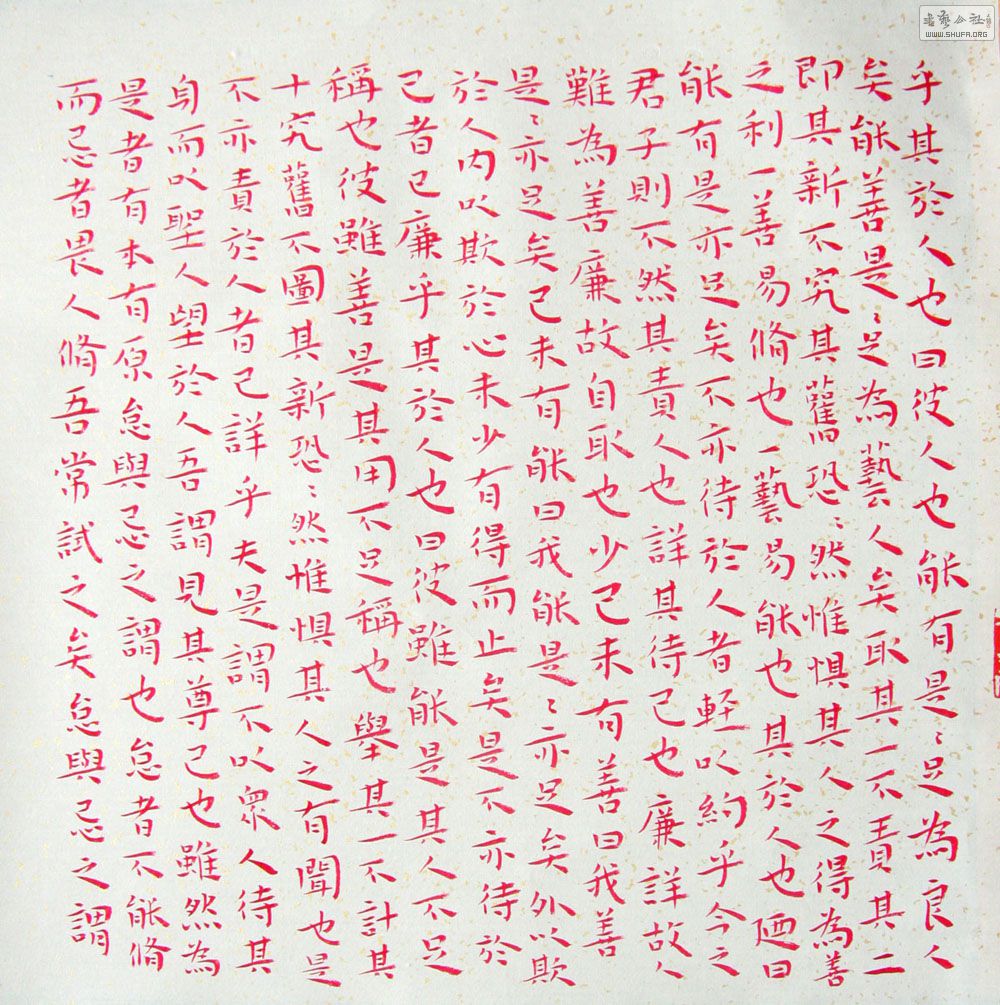 乎其於人也曰彼人也能有是〻足為良人
矣能善是〻足為藝人矣取其一不責其二
即其新不究其舊恐〻然惟懼其人之得為善
之利一善易脩也一藝易能也其於人也廼曰
能有是亦足矣不亦待於人者輕以約乎今之
君子則不然其責人也詳其待己也廉詳故人
難為善廉故自取也少己未有善曰我善
是〻亦足矣己未有能曰我能是〻亦足矣外以欺
於人内以欺於心未少有得而止矣是不亦待於
己者已廉乎其於人也曰彼雖能是其人不足
稱也彼雖善是其用不足稱也舉其一不計其
十究舊不圖其新恐〻然惟懼其人之有聞也是
不亦責於人者已詳乎夫是謂不以衆人待其
身而以聖人望於人吾謂見其尊己也雖然為
是者有本有原怠與忌之謂也怠者不能脩
而忌者畏人脩吾常試之矣怠與忌之謂
書藝公社
WWW.SHUFA.ORG